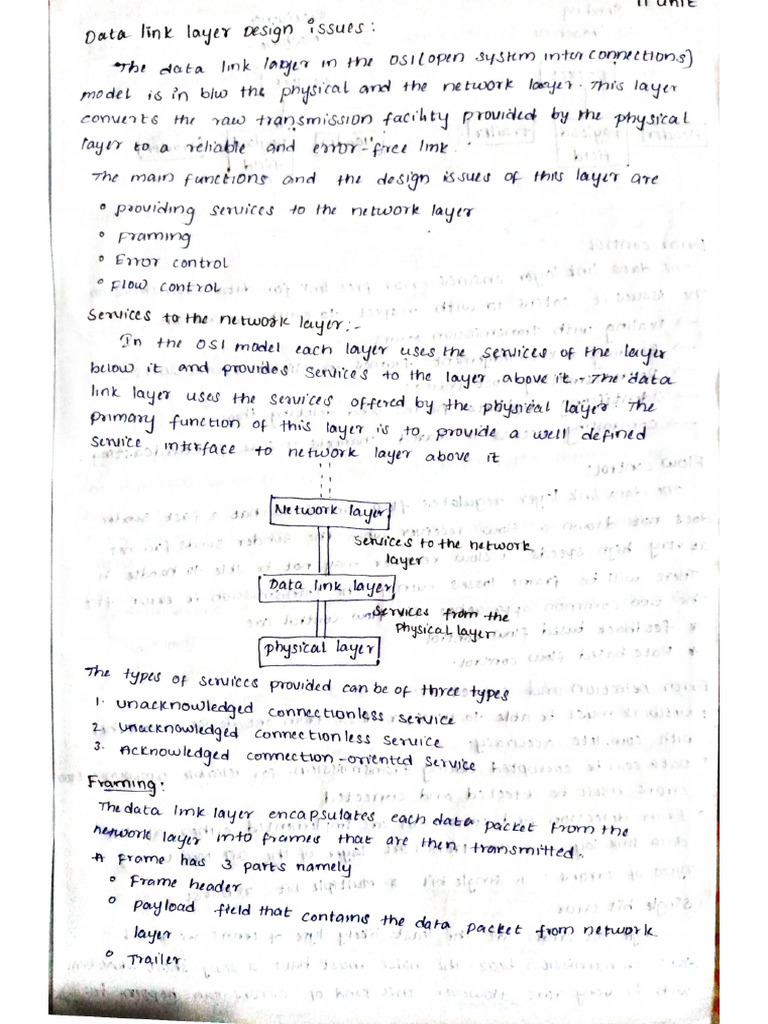 II unit
Data link layer Design issues:
The data link layer in the OSI (open system inter connections)
model is in b/w the physical and the network layer. This layer
converts the raw transmission facility provided by the physical
layer to a reliable and error-free link.
The main functions and the design issues of this layer are
° providing services to the network layer
° Framing
° Error control
° Flow control
Services to the network layer:-
In the OSI model each layer uses the services of the layer
below it and provides services to the layer above it. The data
link layer uses the services offered by the physical layer. The
primary function of this layer is to provide a well defined
service interface to network layer above it
Network layer
Services to the network
layer
Data link layer
Services from the
Physical layer
physical layer
The types of services provided can be of three types
1. unacknowledged connectionless service
2. unacknowledged connectionless service
3. Acknowledged connection-oriented service
Framing:
The data link layer encapsulates each data packet from the
network layer into frames that are then transmitted.
A frame has 3 parts namely
° Frame header
° payload field that contains the data packet from network
layer
° Trailer